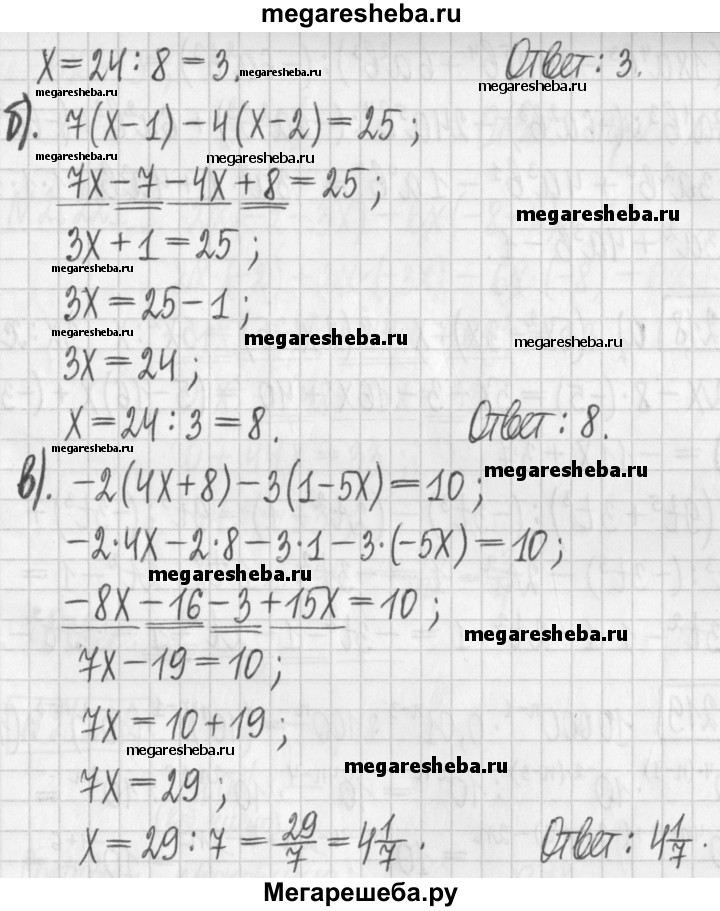 megaresheba.ru
x=24:8=3. megaresheba.ru Ответ: 3.
megaresheba.ru megaresheba.ru
б). 7(x-1)-4(x-2)=25;
megaresheba.ru megaresheba.ru
7x-7-4x+8=25;
megaresheba.ru
3x+1=25;
megaresheba.ru
3x=25-1;
megaresheba.ru megaresheba.ru megaresheba.ru
3x=24;
x=24:3=8. Ответ: 8.
megaresheba.ru
в). -2(4x+8)-3(1-5x)=10;
megaresheba.ru
-2·4x-2·8-3·1-3·(-5x)=10;
megaresheba.ru
-8x-16-3+15x=10;
megaresheba.ru
7x-19=10;
7x=10+19;
megaresheba.ru megaresheba.ru
7x=29;
x=29:7=29/7=4 1/7. Ответ: 4 1/7.
Мегарешеба.ру